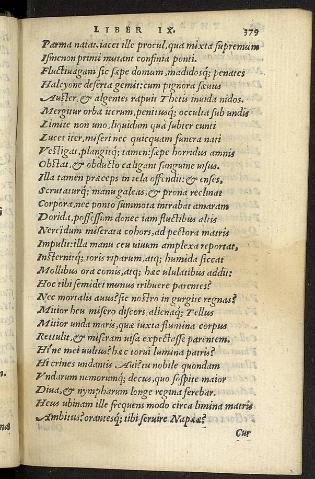 LIBER IX. 379
Parma natat. iacet ille procul, qua mixta supremum
Ismenon primi mutant confinia ponti.
Fluctiuagam sic sæpe domum, madidosq; penates
Halcyone deserta gemit: cum pignora sæuus
Auster, & algentes rapuit Thetis inuida nidos.
Mergitur orba iterum, penitusq; occulta sub undis
Limite non uno, liquidum qua subter eunti
Lucet iter, miseri nec quicquam funera nati
Vestigat, plangitq; tamen: sæpe horridus amnis
Obstat, & obducto caligant sanguine uisus.
Illa tamen præceps in tela offendit: & enses,
Scrutaturq; manu galeas, & prona reclinat
Corpora, nec ponto summota intrabat amaram
Dorida, possessum donec iam fluctibus altis
Nereidum miserata cohors, ad pectora matris
Impulit: illa manu ceu uiuum amplexa reportat,
Insternitq; toris riparum, atq; humida siccat
Mollibus ora comis, atq; hæc ululatibus addit:
Hoc tibi semidei munus tribuere parentes?
Nec mortalis auus? sic nostro in gurgite regnas?
Mitior heu misero discors, alienaq; Tellus
Mitior unda maris, quæ iuxta flumina corpus
Rettulit, & miseram uisa expectasse parentem.
Hi'ne mei uultus? hæc torui lumina patris?
Hi crines undantis Aui? tu nobile quondam
Vndarum nemorumq; decus, quo sospite maior
Diua, & nympharum longe regina ferebar.
Heus ubinam ille frequens modo circa limina matris
Ambitus? orantesq; tibi seruire Napææ?
Cur